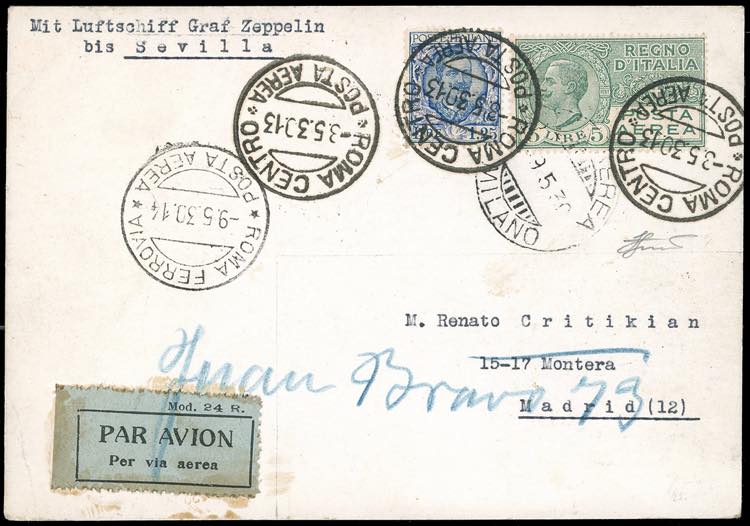 Mit Luftschiff Graf Zeppelin
bis Sevilla
POSTE ITALIANE
1.25
REGNO
D'ITALIA
POSTA
AEREA
5 LIRE 5
ROMA CENTRO
POSTA AEREA
-3.5.30.13
ROMA CENTRO
POSTA AEREA
-3.5.30.13
ROMA CENTRO
POSTA AEREA
-3.5.30.13
ROMA FERROVIA
POSTA AEREA
-9.5.30.14
MILANO
9.5.30
M. Renato Critikian
15-17 Montera
Madrid (12)
Juan Bravo 73
Mod. 24 R.
PAR AVION
Per via aerea